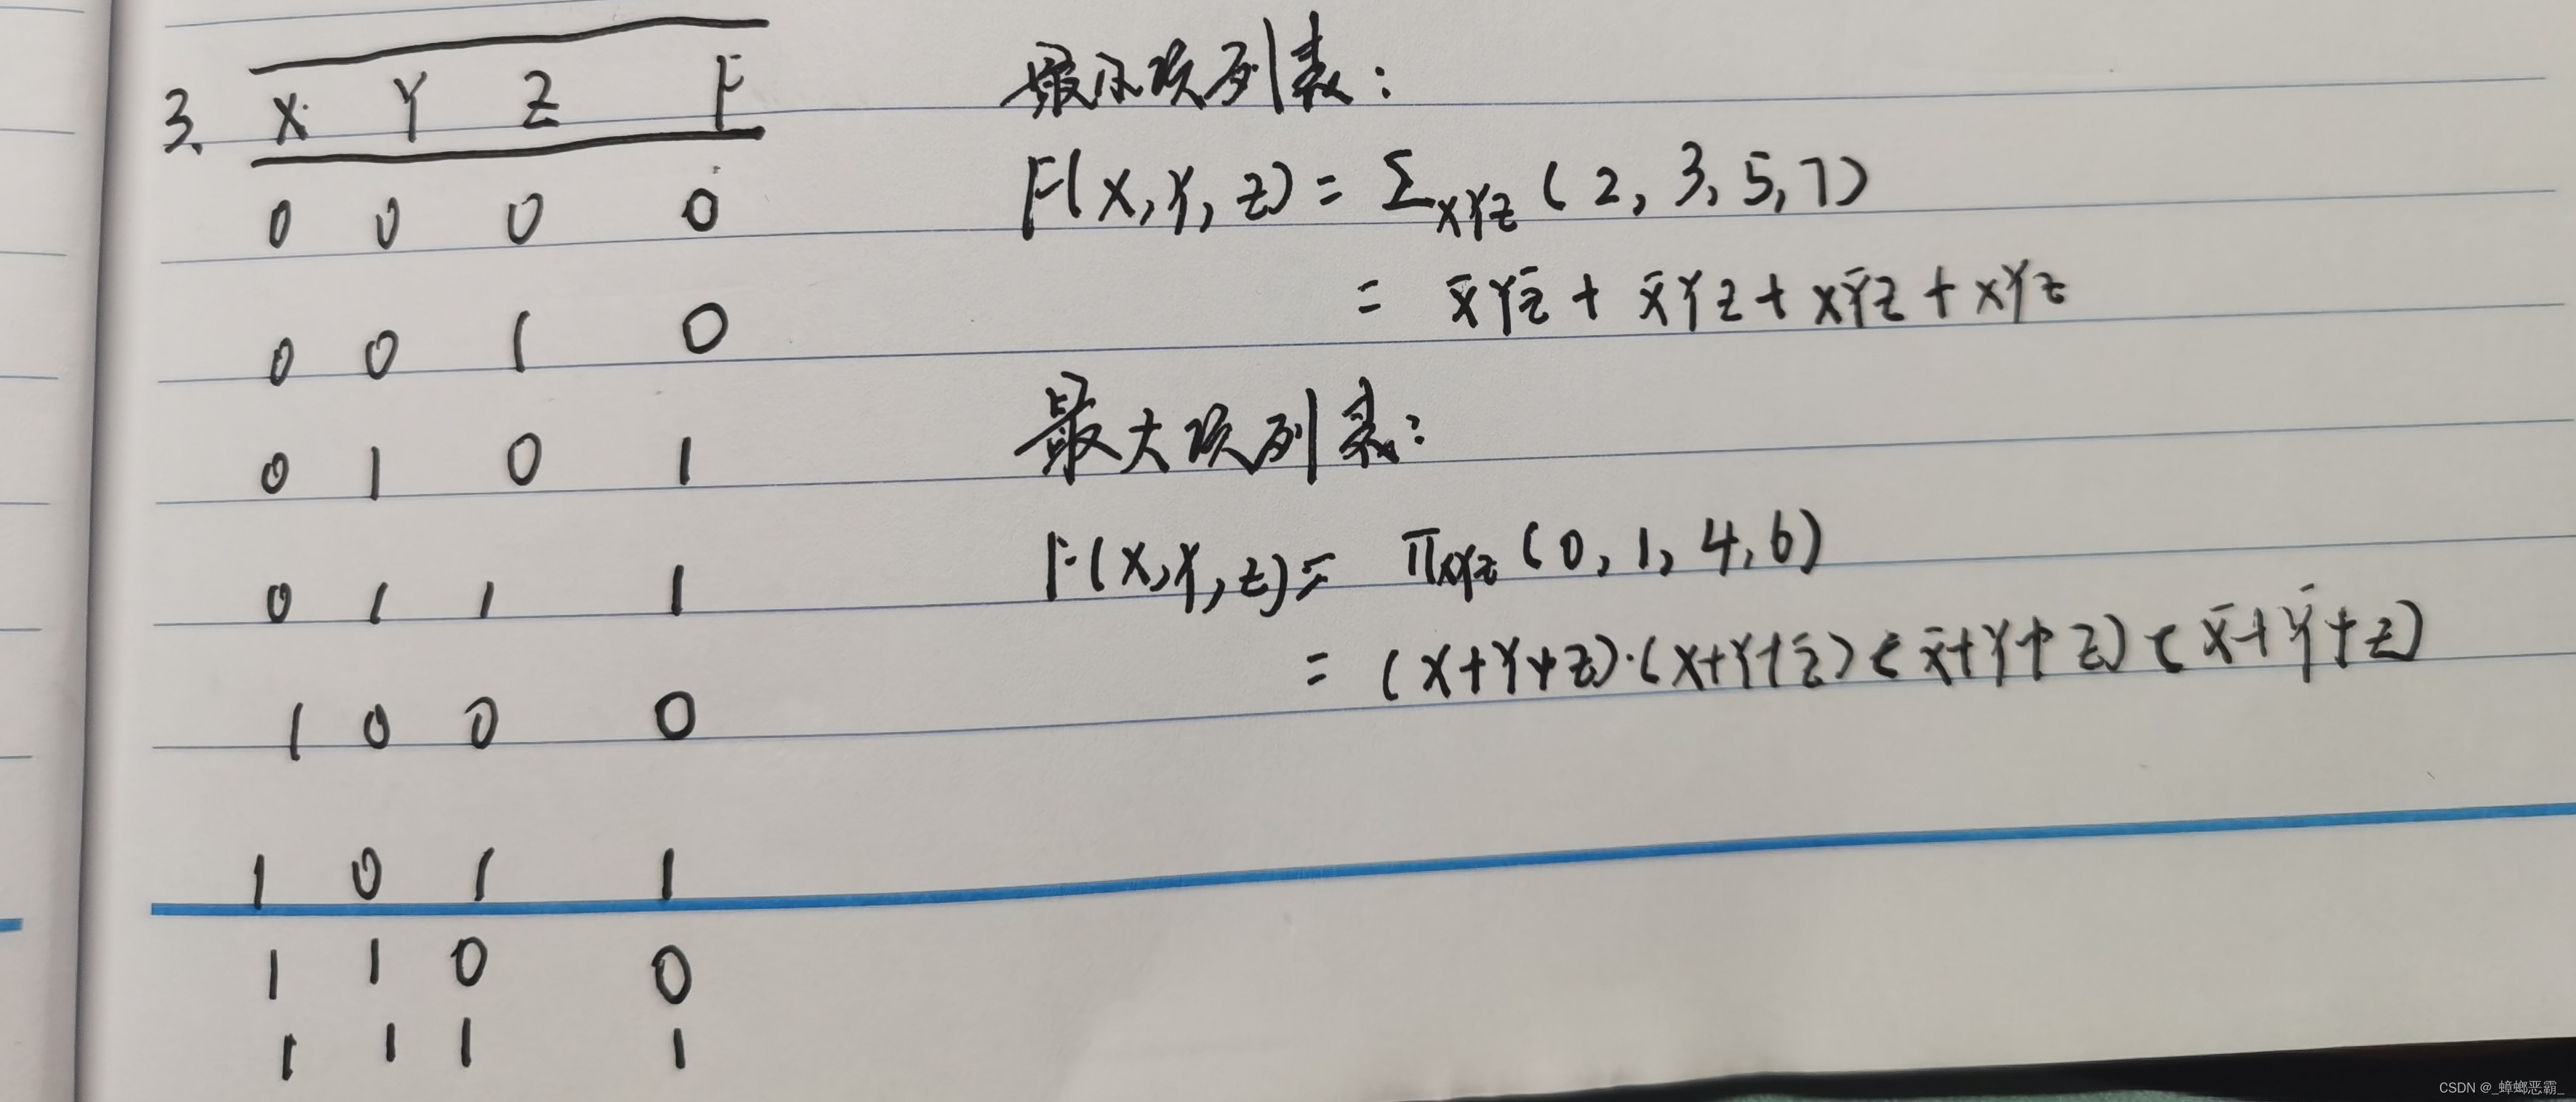 3. X Y Z F
0 0 0 0
0 0 1 0
0 1 0 1
0 1 1 1
1 0 0 0
1 0 1 1
1 1 0 0
1 1 1 1
最小项列表:
F(X,Y,Z) = Σ_XYZ (2, 3, 5, 7)
= X̄YZ̄ + X̄YZ + XȲZ + XYZ
最大项列表:
F(X,Y,Z) = Π_XYZ (0, 1, 4, 6)
= (X+Y+Z)·(X+Y+Z̄)(X̄+Y+Z)(X̄+Ȳ+Z)
CSDN @_蟑螂恶霸_